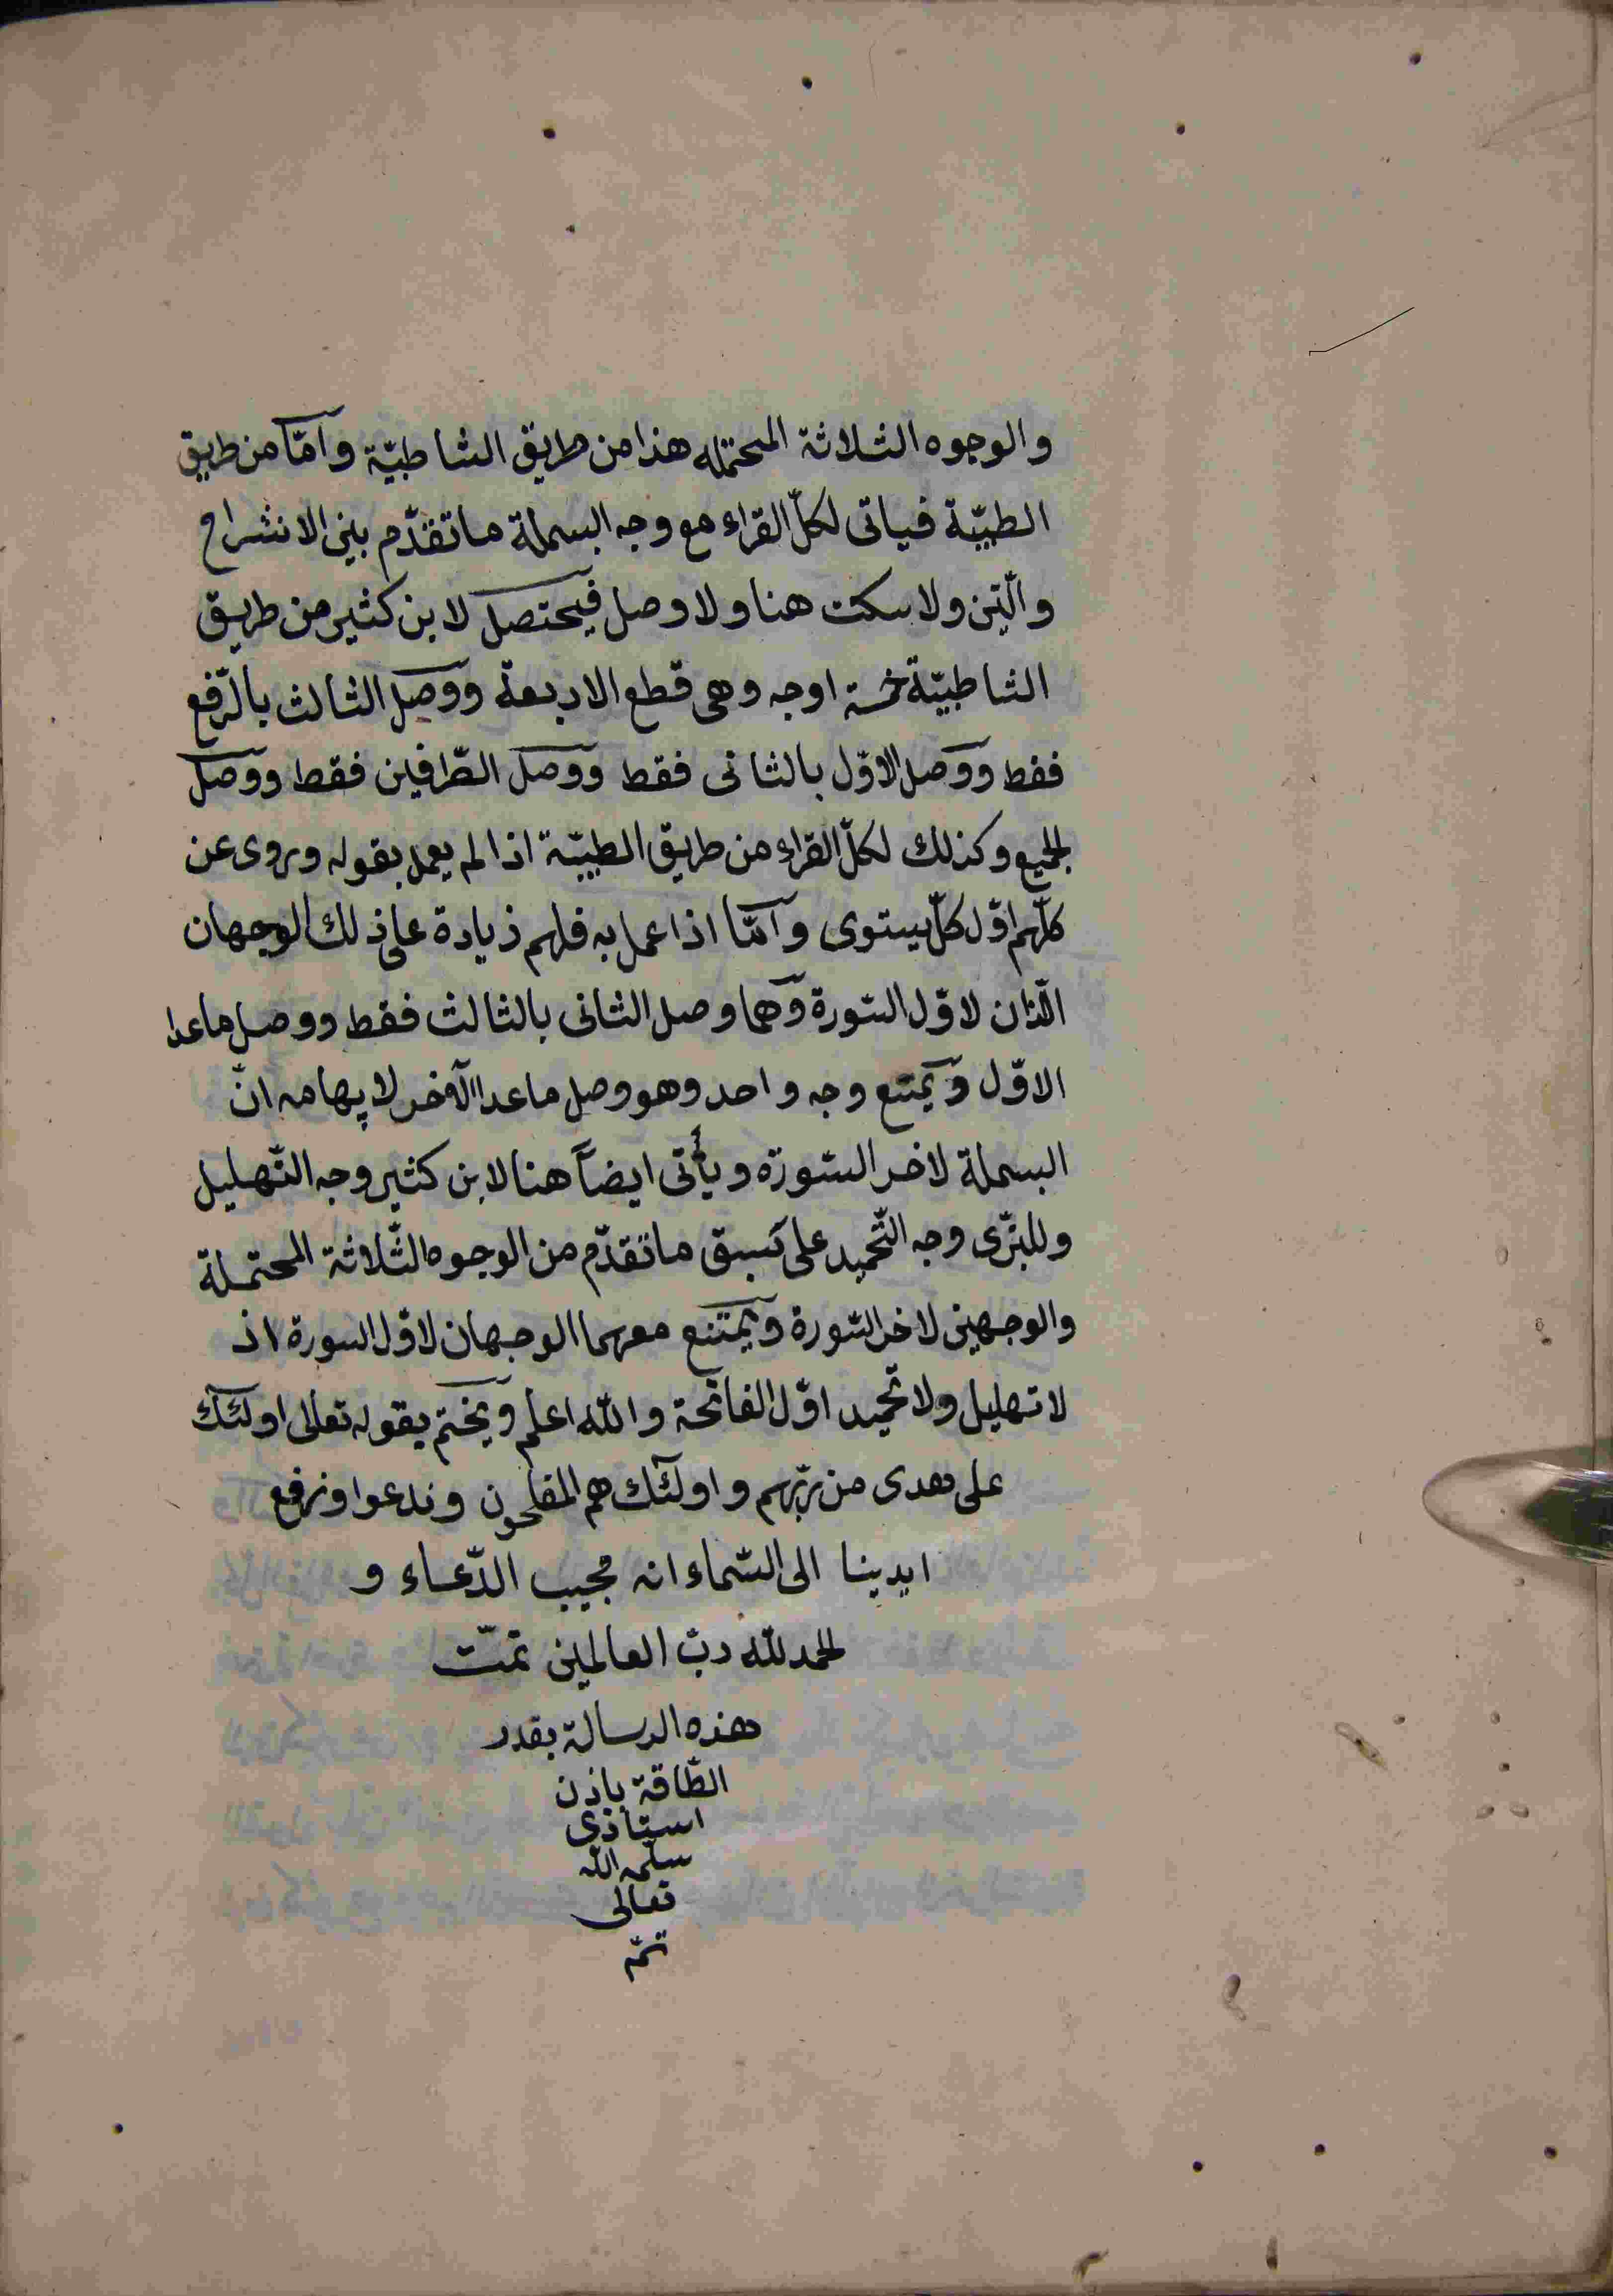 والوجوه الثلاثة المحتمله هذا من طريق الشاطبيّة وامّا من طريق
الطيبّة فياتى لكلّ القراء مع وجه البسملة ما تقدّم بين الانشراح
والّتين ولا سكت هنا ولا وصل فيحتصل لابن كثير من طريق
الشاطبيّة خمسة اوجه وهى قطع الاربعة ووصل الثالث بالرّفع
فقط ووصل الاوّل بالثانى فقط ووصل الطّرافين فقط ووصل
الجميع وكذلك لكلّ القراء من طريق الطيبّة اذا لم يعمل بقوله وروى عن
كلّهم اوّل كلّ يستوى وامّا اذا عمل به فلهم زيادة على ذلك الوجهان
الّذان لاوّل السّورة وهما وصل الثانى بالثالث فقط ووصل ماعدا
الاوّل ويمتنع وجه واحد وهو وصل ماعدا الآخر لايهامه انّ
البسملة لاخر السّورة ويأتى ايضاً هنا لابن كثير وجه التّهليل
وللبزّى وجه التّحميد على نسق ما تقدّم من الوجوه الثّلاثة المحتملة
والوجهين لاخر السّورة ويمتنع معهما الوجهان لاوّل السورة اذ
لا تهليل ولا تحميد اوّل الفاتحة والله اعلم ويختم بقوله تعالى اولئك
على هدى من ربّهم واولئك هم المفلحون وندعوا ونرفع
ايدينا الى السّماء انه مجيب الدّعاء و
الحمد لله ربّ العالمين تمّت
هذه الرسالة بقدر
الطّاقة باذن
استاذى
سلّمه الله
تعالى
تمّ